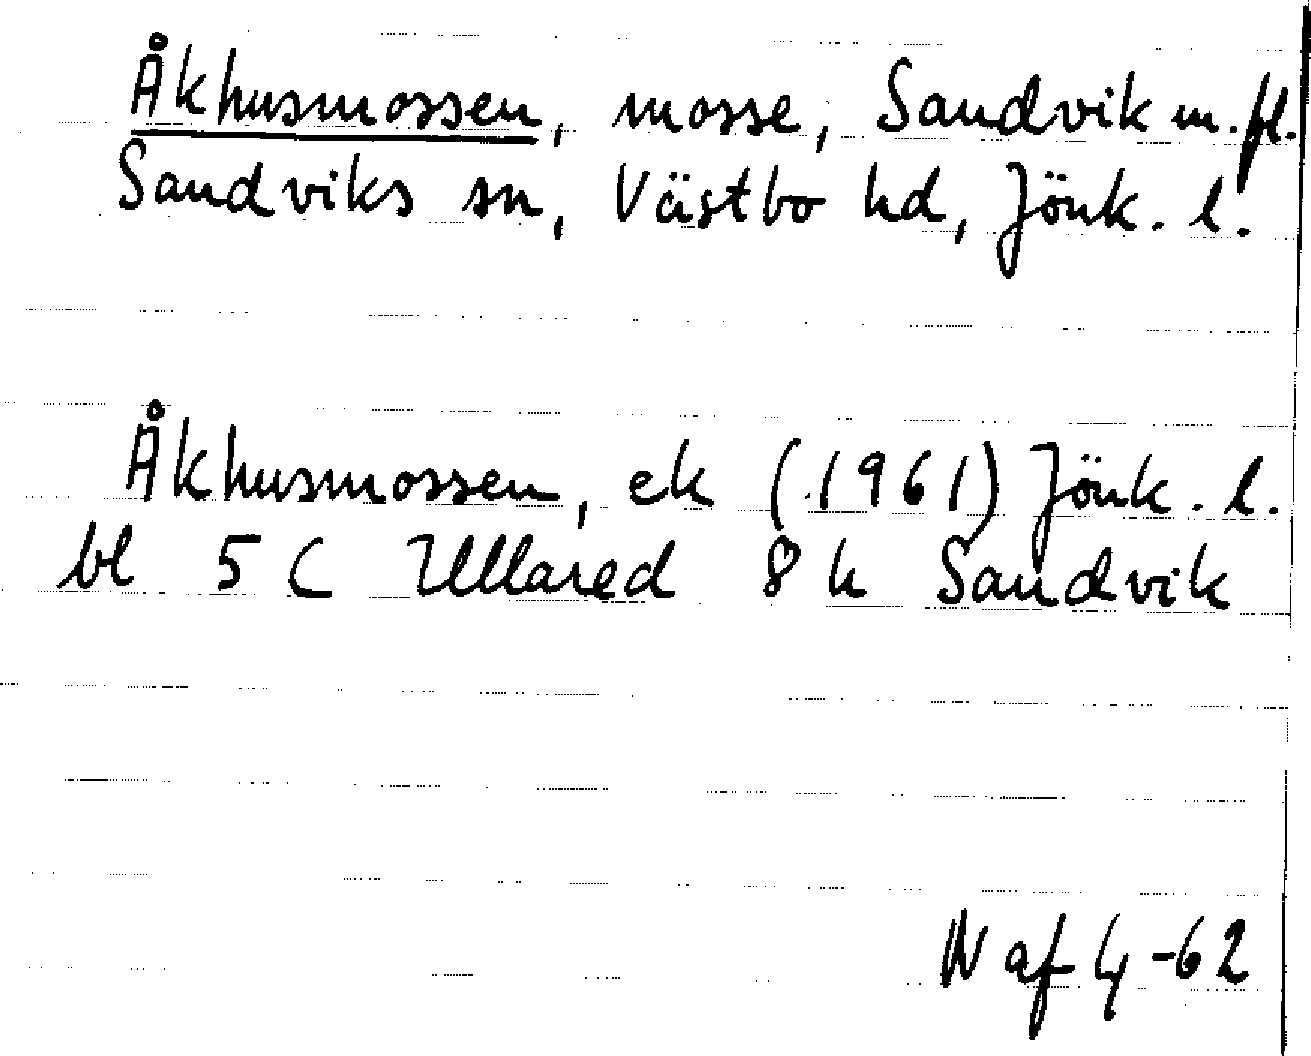 Åkhusmossen, mosse, Sandvik m. fl.
Sandviks sn, Västbo hd, Jönk. l.
Åkhusmossen, ek (1961) Jönk. l.
bl 5 C Ullared 8 h Sandvik
N af 4-62